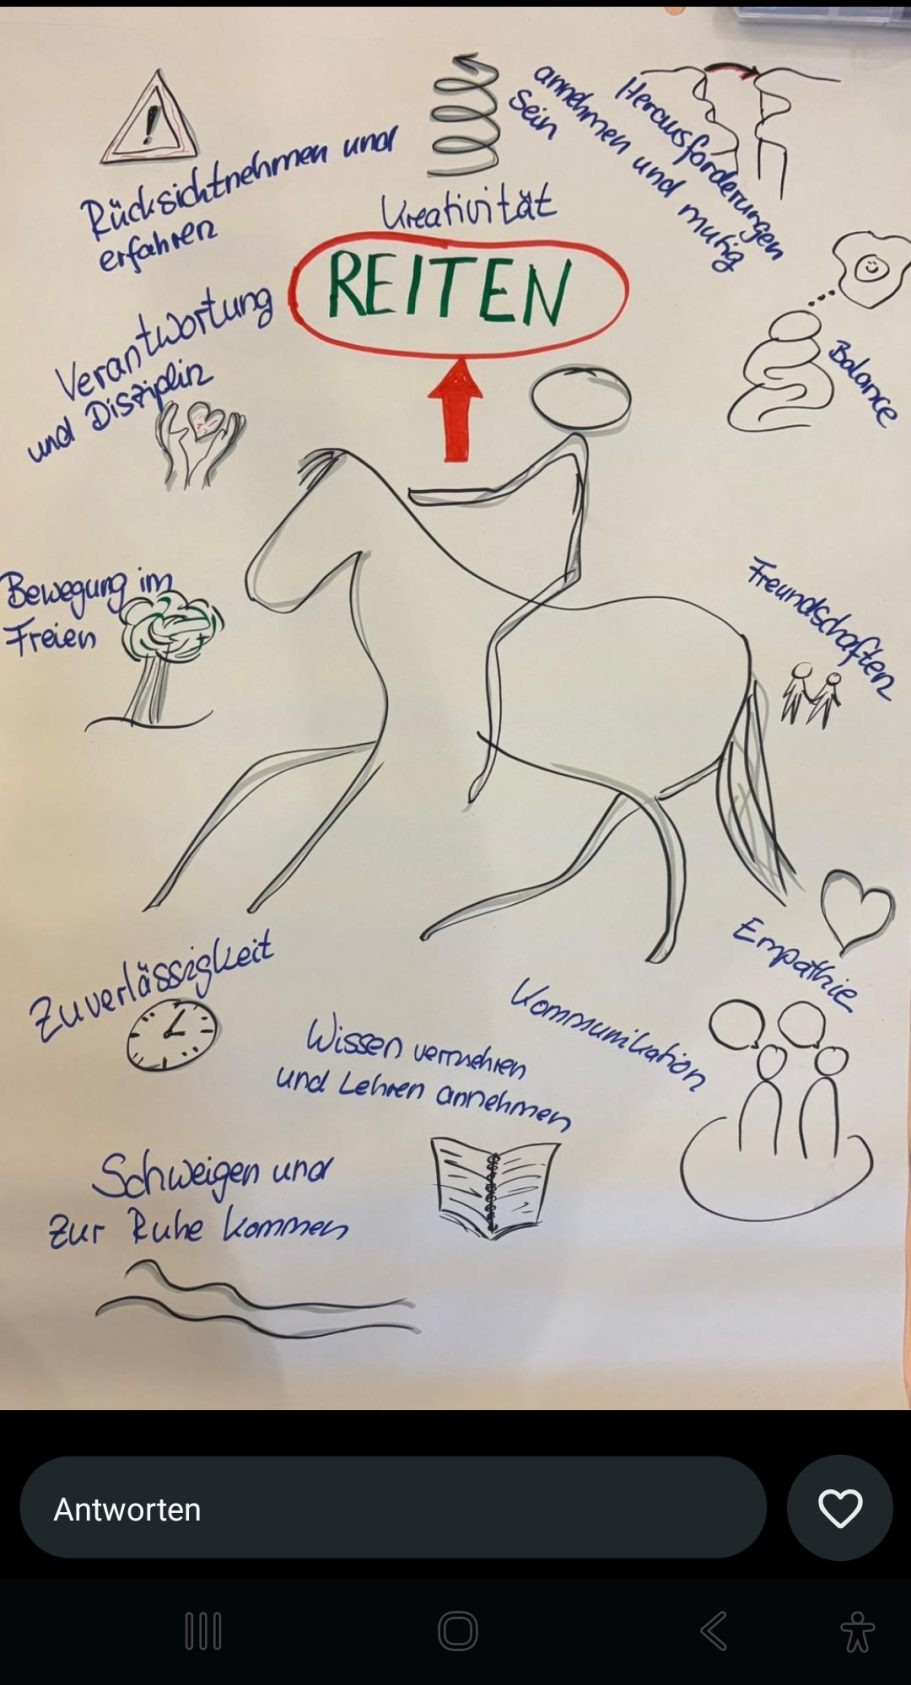 Rücksichtnehmen und
erfahren
Kreativität
Herausforderungen
annehmen und mutig
sein
REITEN
Verantwortung
und Disziplin
Balance
Bewegung im
Freien
Freundschaften
Empathie
Zuverlässigkeit
Kommunikation
Wissen vermehren
und Lehren annehmen
Schweigen und
zur Ruhe kommen
Antworten